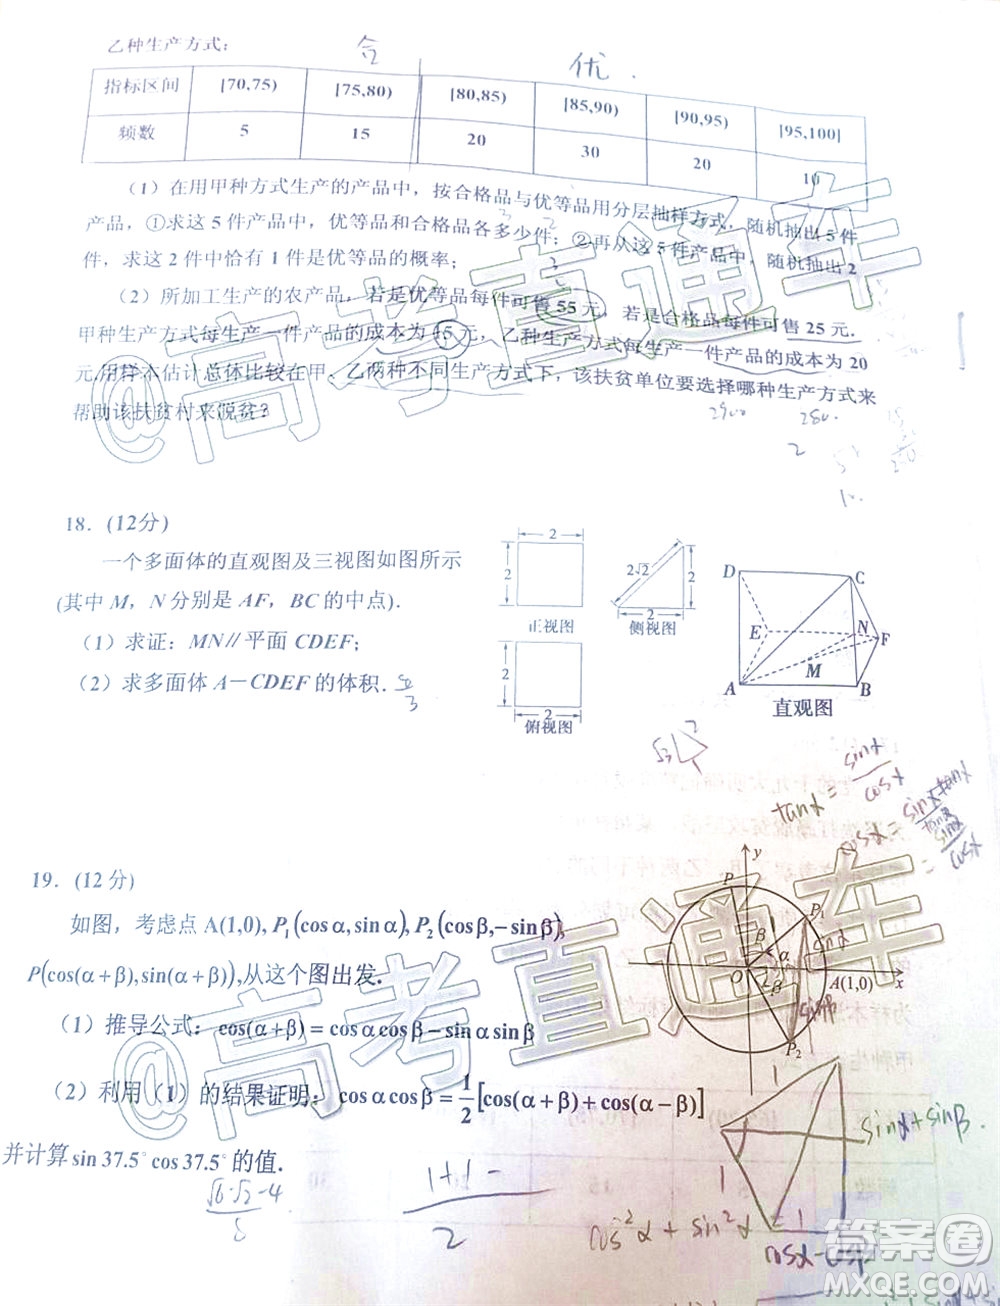 乙种生产方式：
合 优
指标区间 [70,75) [75,80) [80,85) [85,90) [90,95) [95,100]
频数 5 15 20 30 20 10
（1）在用甲种方式生产的产品中，按合格品与优等品用分层抽样方式，随机抽出 5 件
产品，①求这 5 件产品中，优等品和合格品各多少件；②再从这 5 件产品中，随机抽出 2
件，求这 2 件中恰有 1 件是优等品的概率；
（2）所加工生产的农产品，若是优等品每件可售 55 元，若是合格品每件可售 25 元.
甲种生产方式每生产一件产品的成本为 15 元，乙种生产方式每生产一件产品的成本为 20
元.用样本估计总体比较在甲、乙两种不同生产方式下，该扶贫单位要选择哪种生产方式来
帮助该扶贫村来脱贫？
2900 280.
@高考直通车
18. (12分)
一个多面体的直观图及三视图如图所示
(其中 M，N 分别是 AF，BC 的中点).
（1）求证：MN∥平面 CDEF；
（2）求多面体 A－CDEF 的体积.
2 2 正视图
2√2 2 2 侧视图
2 2 俯视图
D C E N F M A B
直观图
√3 2 1
tanα = sinα/cosα
19. (12 分)
如图，考虑点 A(1,0), P₁(cosα,sinα), P₂(cosβ,−sinβ),
P(cos(α+β),sin(α+β)),从这个图出发.
（1）推导公式：cos(α+β)=cosαcosβ−sinαsinβ
（2）利用（1）的结果证明：cosαcosβ=1/2[cos(α+β)+cos(α−β)]
并计算 sin 37.5° cos 37.5° 的值.
y P P₁ β α O β A(1,0) x P₂
sinα
sinβ
@高考直通车
1 sinα+sinβ.
1
1
cosα-cosβ
1+1- / 2
cos²α + sin²α = 1
答案圈
MXQE.COM